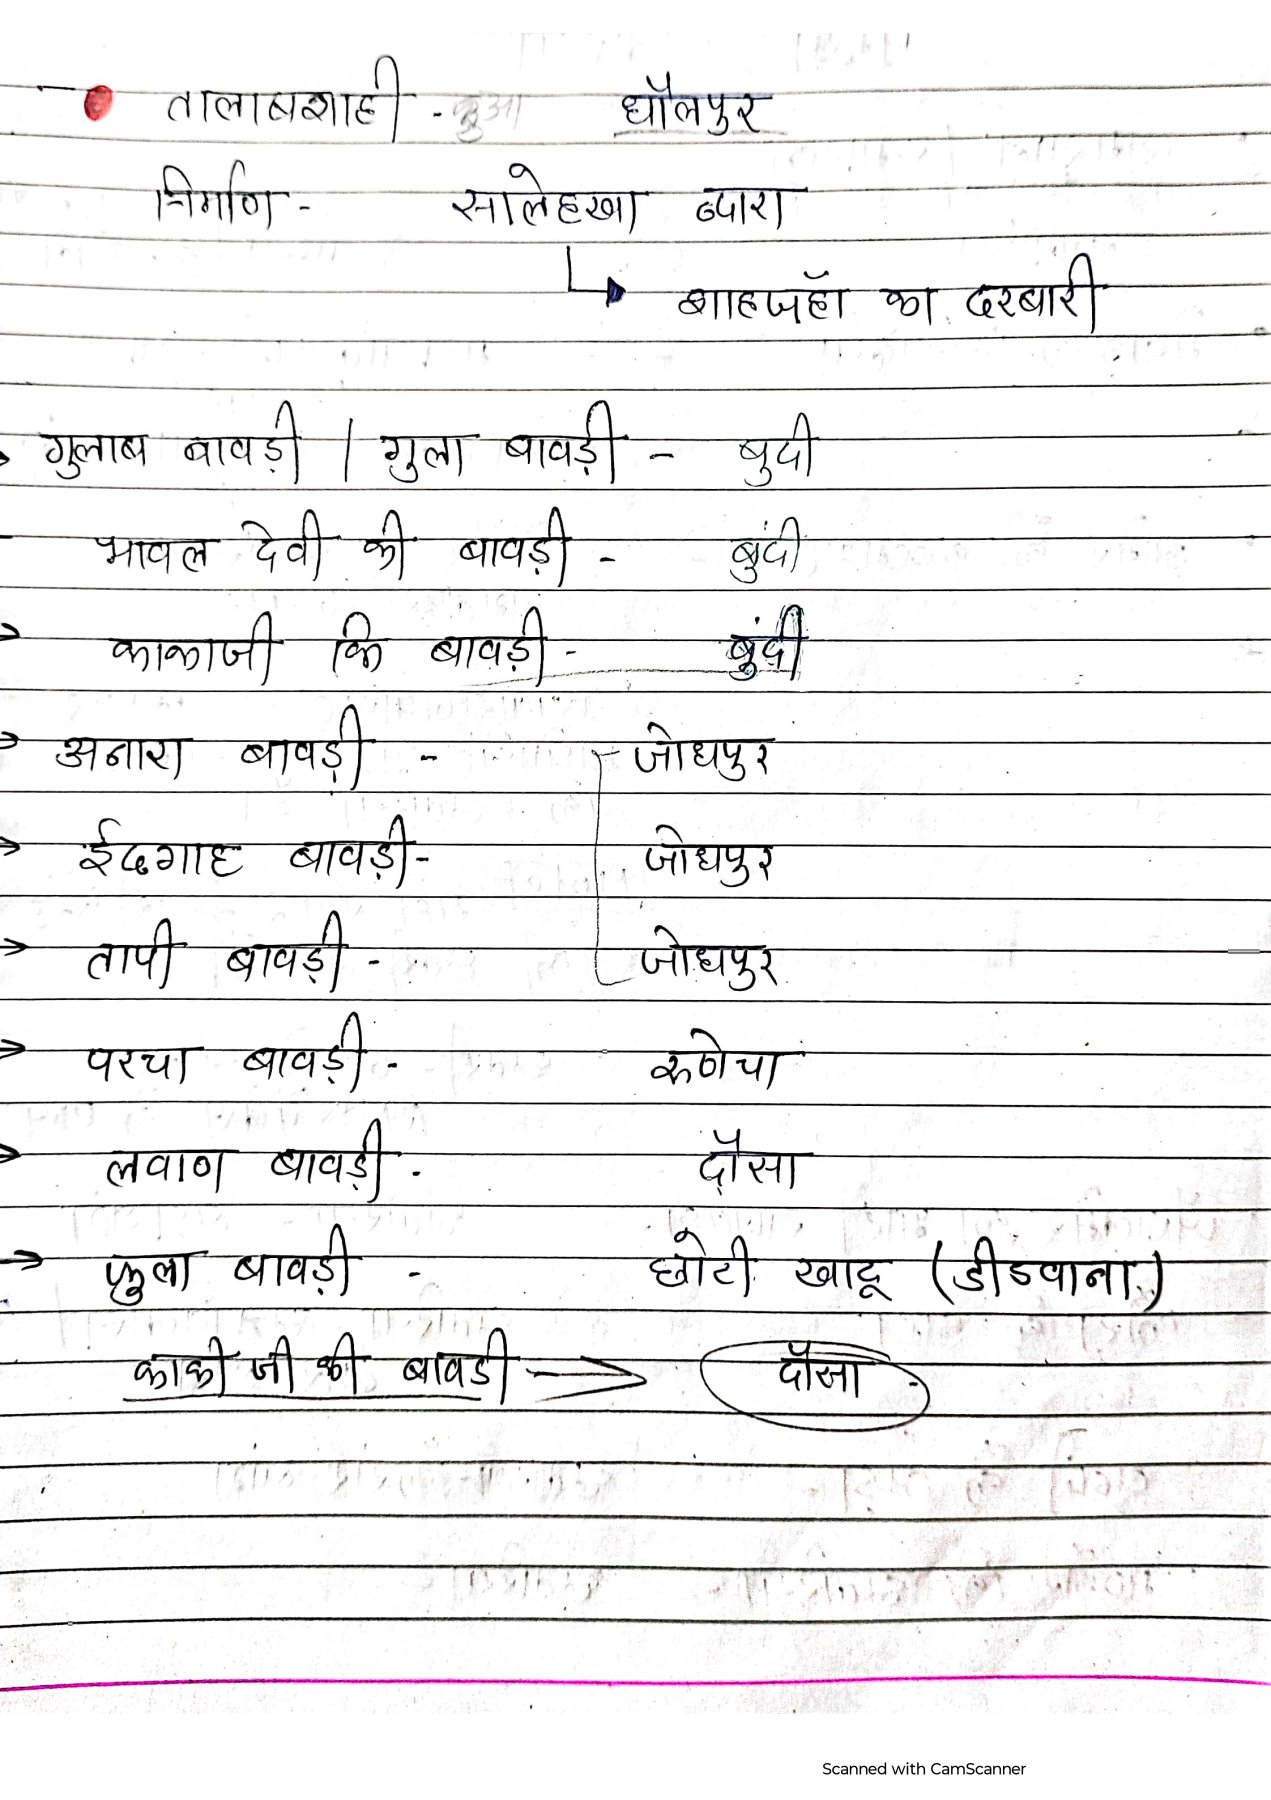 तालाबशाही - कुआ धौलपुर
निर्माण - सालेहखा ध्दारा
शाहजहाॅ का दरबारी
गुलाब बावड़ी / गुला बावड़ी - बुदी
भावल देवी की बावड़ी - बुंदी
काकाजी कि बावड़ी - बुंदी
अनारा बावड़ी - जोधपुर
ईदगाह बावड़ी - जोधपुर
तापी बावड़ी - जोधपुर
परचा बावड़ी - रुणेचा
लवाण बावड़ी - दौसा
फुला बावड़ी - छोटी खाटू (डीडवाना)
काकी जी की बावडी → दौसा
Scanned with CamScanner